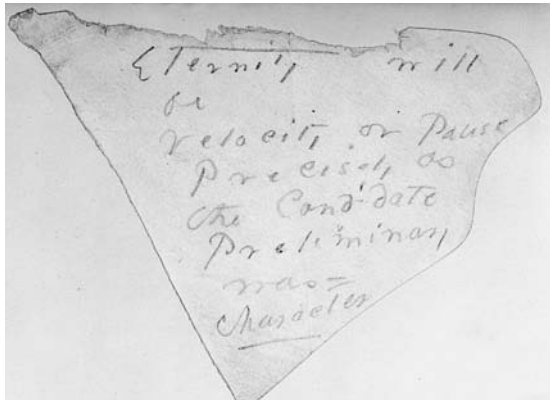 Eternity will
be
Velocity or Pause
Precisely as
the Candidate
Preliminary
was =
Character